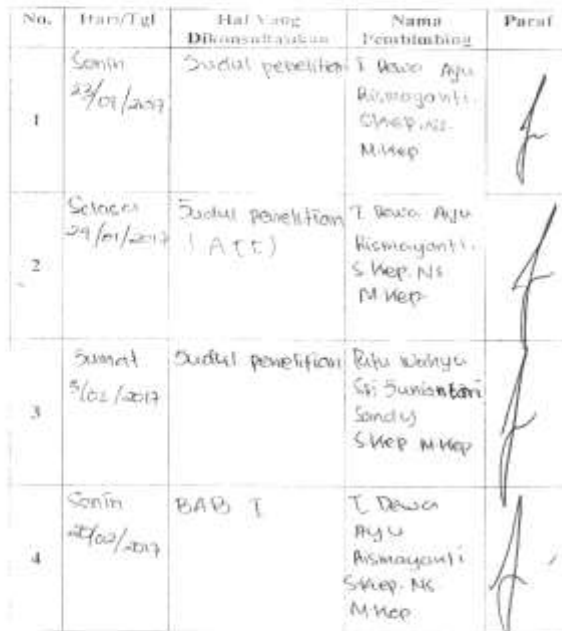 No. Hari/Tgl Hal Yang Dikonsultasikan Nama Pembimbing Paraf
1
Senin
23/01/2017
Judul penelitian
I Dewa Ayu
Rismayanti.
S.Kep.Ns.
M.Kep
2
Selasa
24/01/2017
Judul penelitian
(ACC)
I Dewa Ayu
Rismayanti.
S.Kep.Ns
M.Kep
3
Jumat
2017
Judul penelitian
Putu Wahyu
Sri Juniantari
Sandy
S.Kep M.Kep
4
Senin
/02/2017
BAB I
I Dewa
Ayu
Rismayanti
S.Kep.Ns
M.Kep